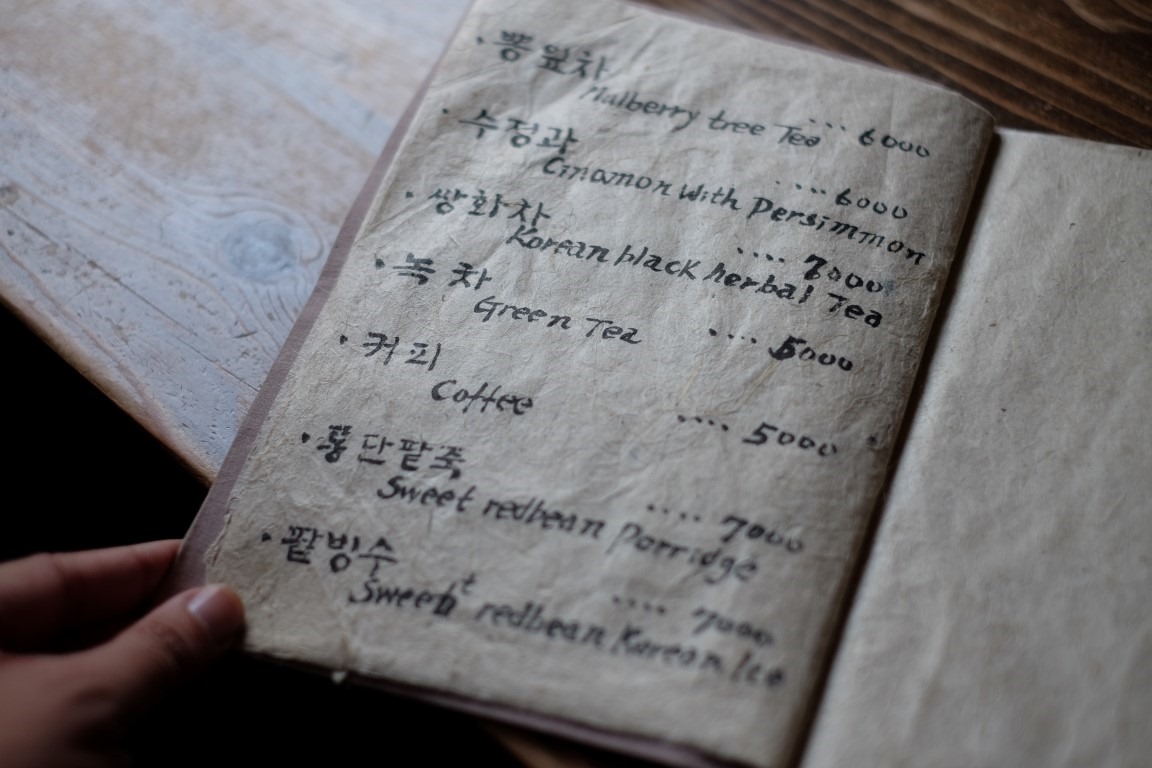 · 뽕잎차 .... 6000
Mulberry tree Tea
· 수정과 .... 6000
Cinamon with Persimmon
· 쌍화차 .... 7000
Korean black herbal Tea
· 녹차 .... 5000
Green Tea
· 커피 .... 5000
Coffee
· 통단팥죽 .... 7000
Sweet redbean Porridge
· 팥빙수 .... 7000
Sweet redbean Korean Ice